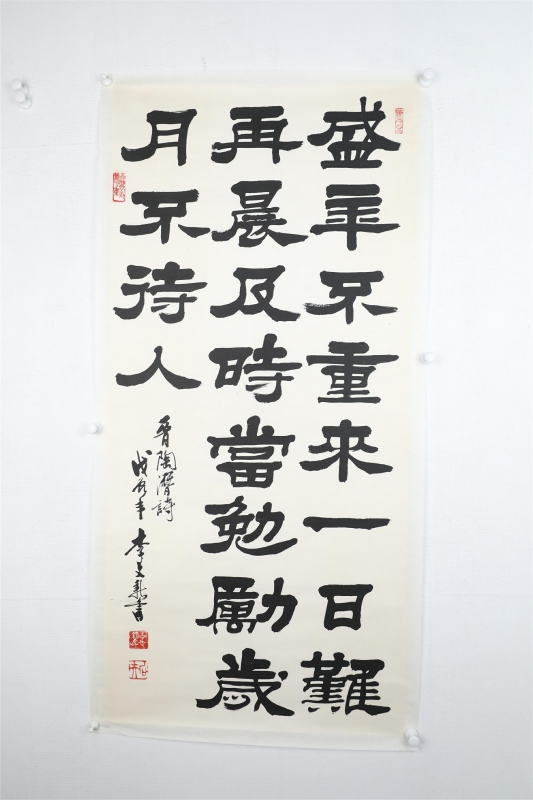 盛年不重来一日難
再晨及時當勉勵歲
月不待人
晋陶潛詩
戊辰年 李文新書